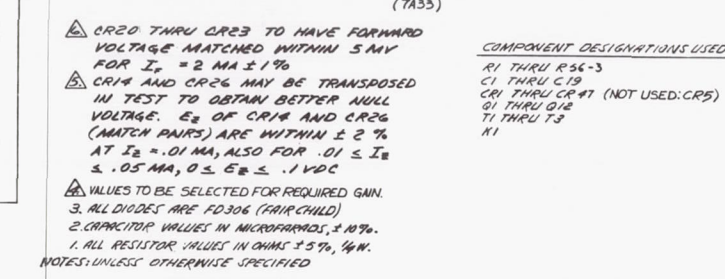 (7A33)
6. CR20 THRU CR23 TO HAVE FORWARD
VOLTAGE MATCHED WITHIN 5 MV
FOR IF = 2 MA ± 1%
5. CR14 AND CR26 MAY BE TRANSPOSED
IN TEST TO OBTAIN BETTER NULL
VOLTAGE. EZ OF CR14 AND CR26
(MATCH PAIRS) ARE WITHIN ± 2 %
AT IZ = .01 MA, ALSO FOR .01 ≤ IZ
≤ .05 MA, 0 ≤ EZ ≤ .1 VDC
4. VALUES TO BE SELECTED FOR REQUIRED GAIN.
3. ALL DIODES ARE FD306 (FAIRCHILD)
2. CAPACITOR VALUES IN MICROFARADS, ± 10%.
1. ALL RESISTOR VALUES IN OHMS ± 5%, 1/4 W.
NOTES: UNLESS OTHERWISE SPECIFIED
COMPONENT DESIGNATIONS USED
R1 THRU R56-3
C1 THRU C19
CR1 THRU CR47 (NOT USED: CR5)
Q1 THRU Q12
T1 THRU T3
K1